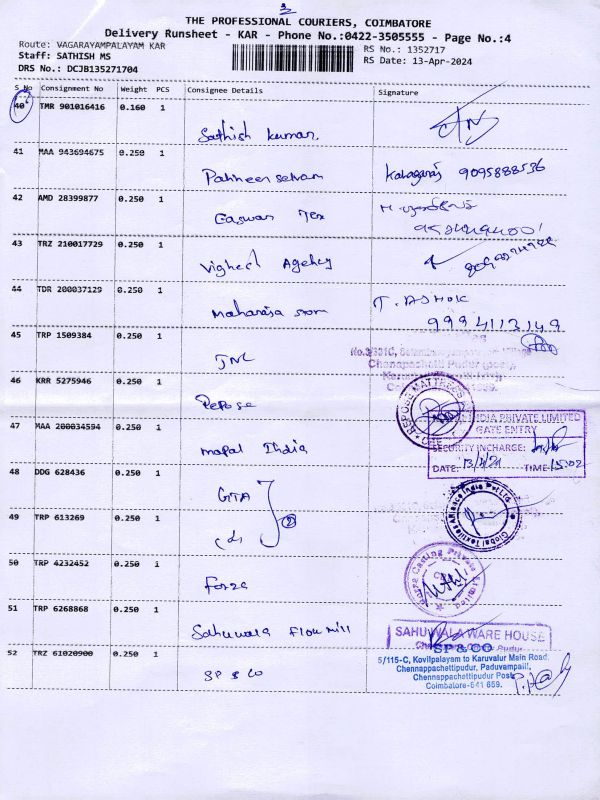 3
THE PROFESSIONAL COURIERS, COIMBATORE
Delivery Runsheet - KAR - Phone No.:0422-3505555 - Page No.:4
Route: VAGARAYAMPALAYAM KAR
RS No.: 1352717
Staff: SATHISH MS
RS Date: 13-Apr-2024
DRS No.: DCJB135271704
S No Consignment No Weight PCS Consignee Details Signature
40 TMR 901016416 0.160 1
Sathish kumar.
41 MAA 943694675 0.250 1
Panneer selvam 9095888536
42 AMD 28399877 0.250 1
Easwari Tex
43 TRZ 210017729 0.250 1
Vighesh Agency
44 TDR 200037129 0.250 1
Maharaja T. ASHOK
9994113149
45 TRP 1509384 0.250 1
JNC
Chenapachetti Pudur
46 KRR 5275946 0.250 1
Repose
REPOSE MATTRESS
47 MAA 200034594 0.250 1
mapal India
INDIA PRIVATE LIMITED
GATE ENTRY
SECURITY INCHARGE:
DATE: 13/4/24 TIME 15:02
48 DDG 628436 0.250 1
GTA
49 TRP 613269 0.250 1
2
Global Textiles Alliance India Pvt Ltd
50 TRP 4232452 0.250 1
forza
Casting Private Limited
51 TRP 6268868 0.250 1
Sahuwala Flour mill
SAHUWALA WARE HOUSE
52 TRZ 61020900 0.250 1
SP & CO
SP & CO
5/115-C, Kovilpalayam to Karuvalur Main Road,
Chennappachettipudur, Paduvampalli,
Chennappachettipudur Post,
Coimbatore-641 659.